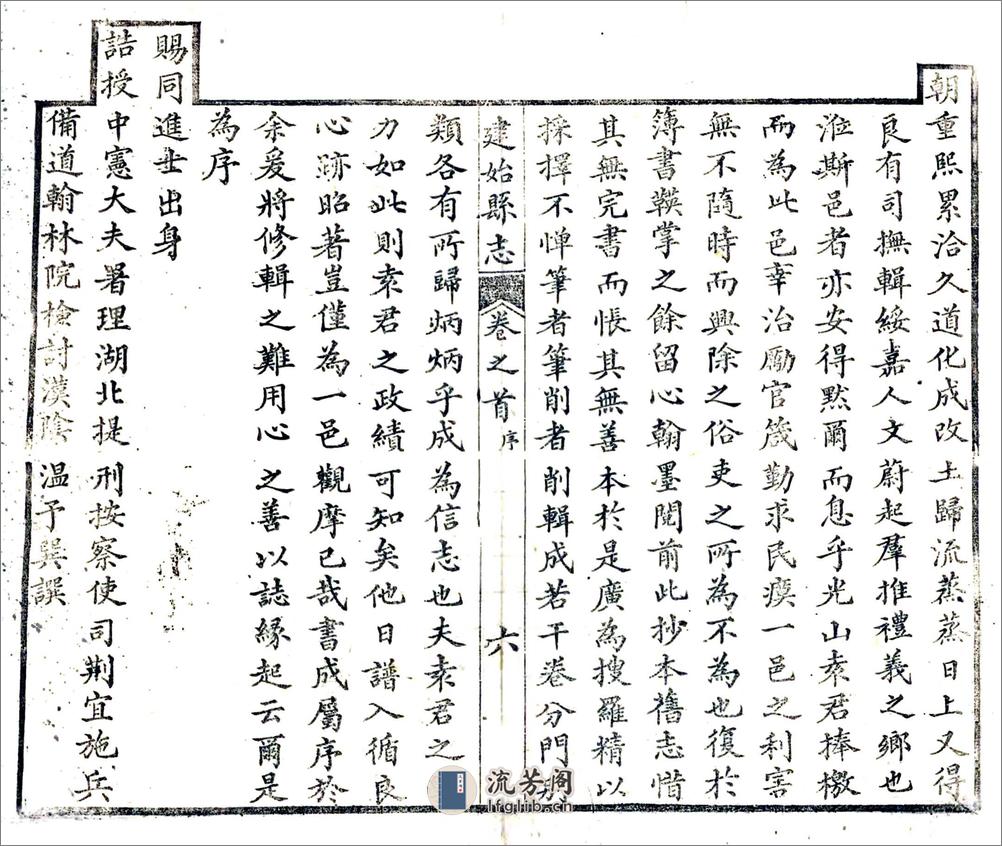 朝重熙累洽久道化成改土歸流蒸蒸日上又得
良有司撫輯綏嘉人文蔚起羣推禮義之鄉也
涖斯邑者亦安得默爾而息乎光山袁君捧檄
而為此邑宰治勵官箴勤求民瘼一邑之利害
無不隨時而興除之俗吏之所為不為也復於
簿書鞅掌之餘留心翰墨閱前此抄本舊志惜
其無完書而悵其無善本於是廣為搜羅精以
採擇不憚筆者筆削者削輯成若干卷分門
建始縣志
卷之首
序
六
類各有所歸炳炳乎成為信志也夫袁君之
力如此則袁君之政績可知矣他日譜入循良
心跡昭著豈僅為一邑觀摩已哉書成屬序於
余爰將修輯之難用心之善以誌緣起云爾是
為序
賜同進士出身
誥授中憲大夫署理湖北提刑按察使司荆宜施兵
備道翰林院檢討漢陰溫予巽譔
流芳阁
lfglib.cn